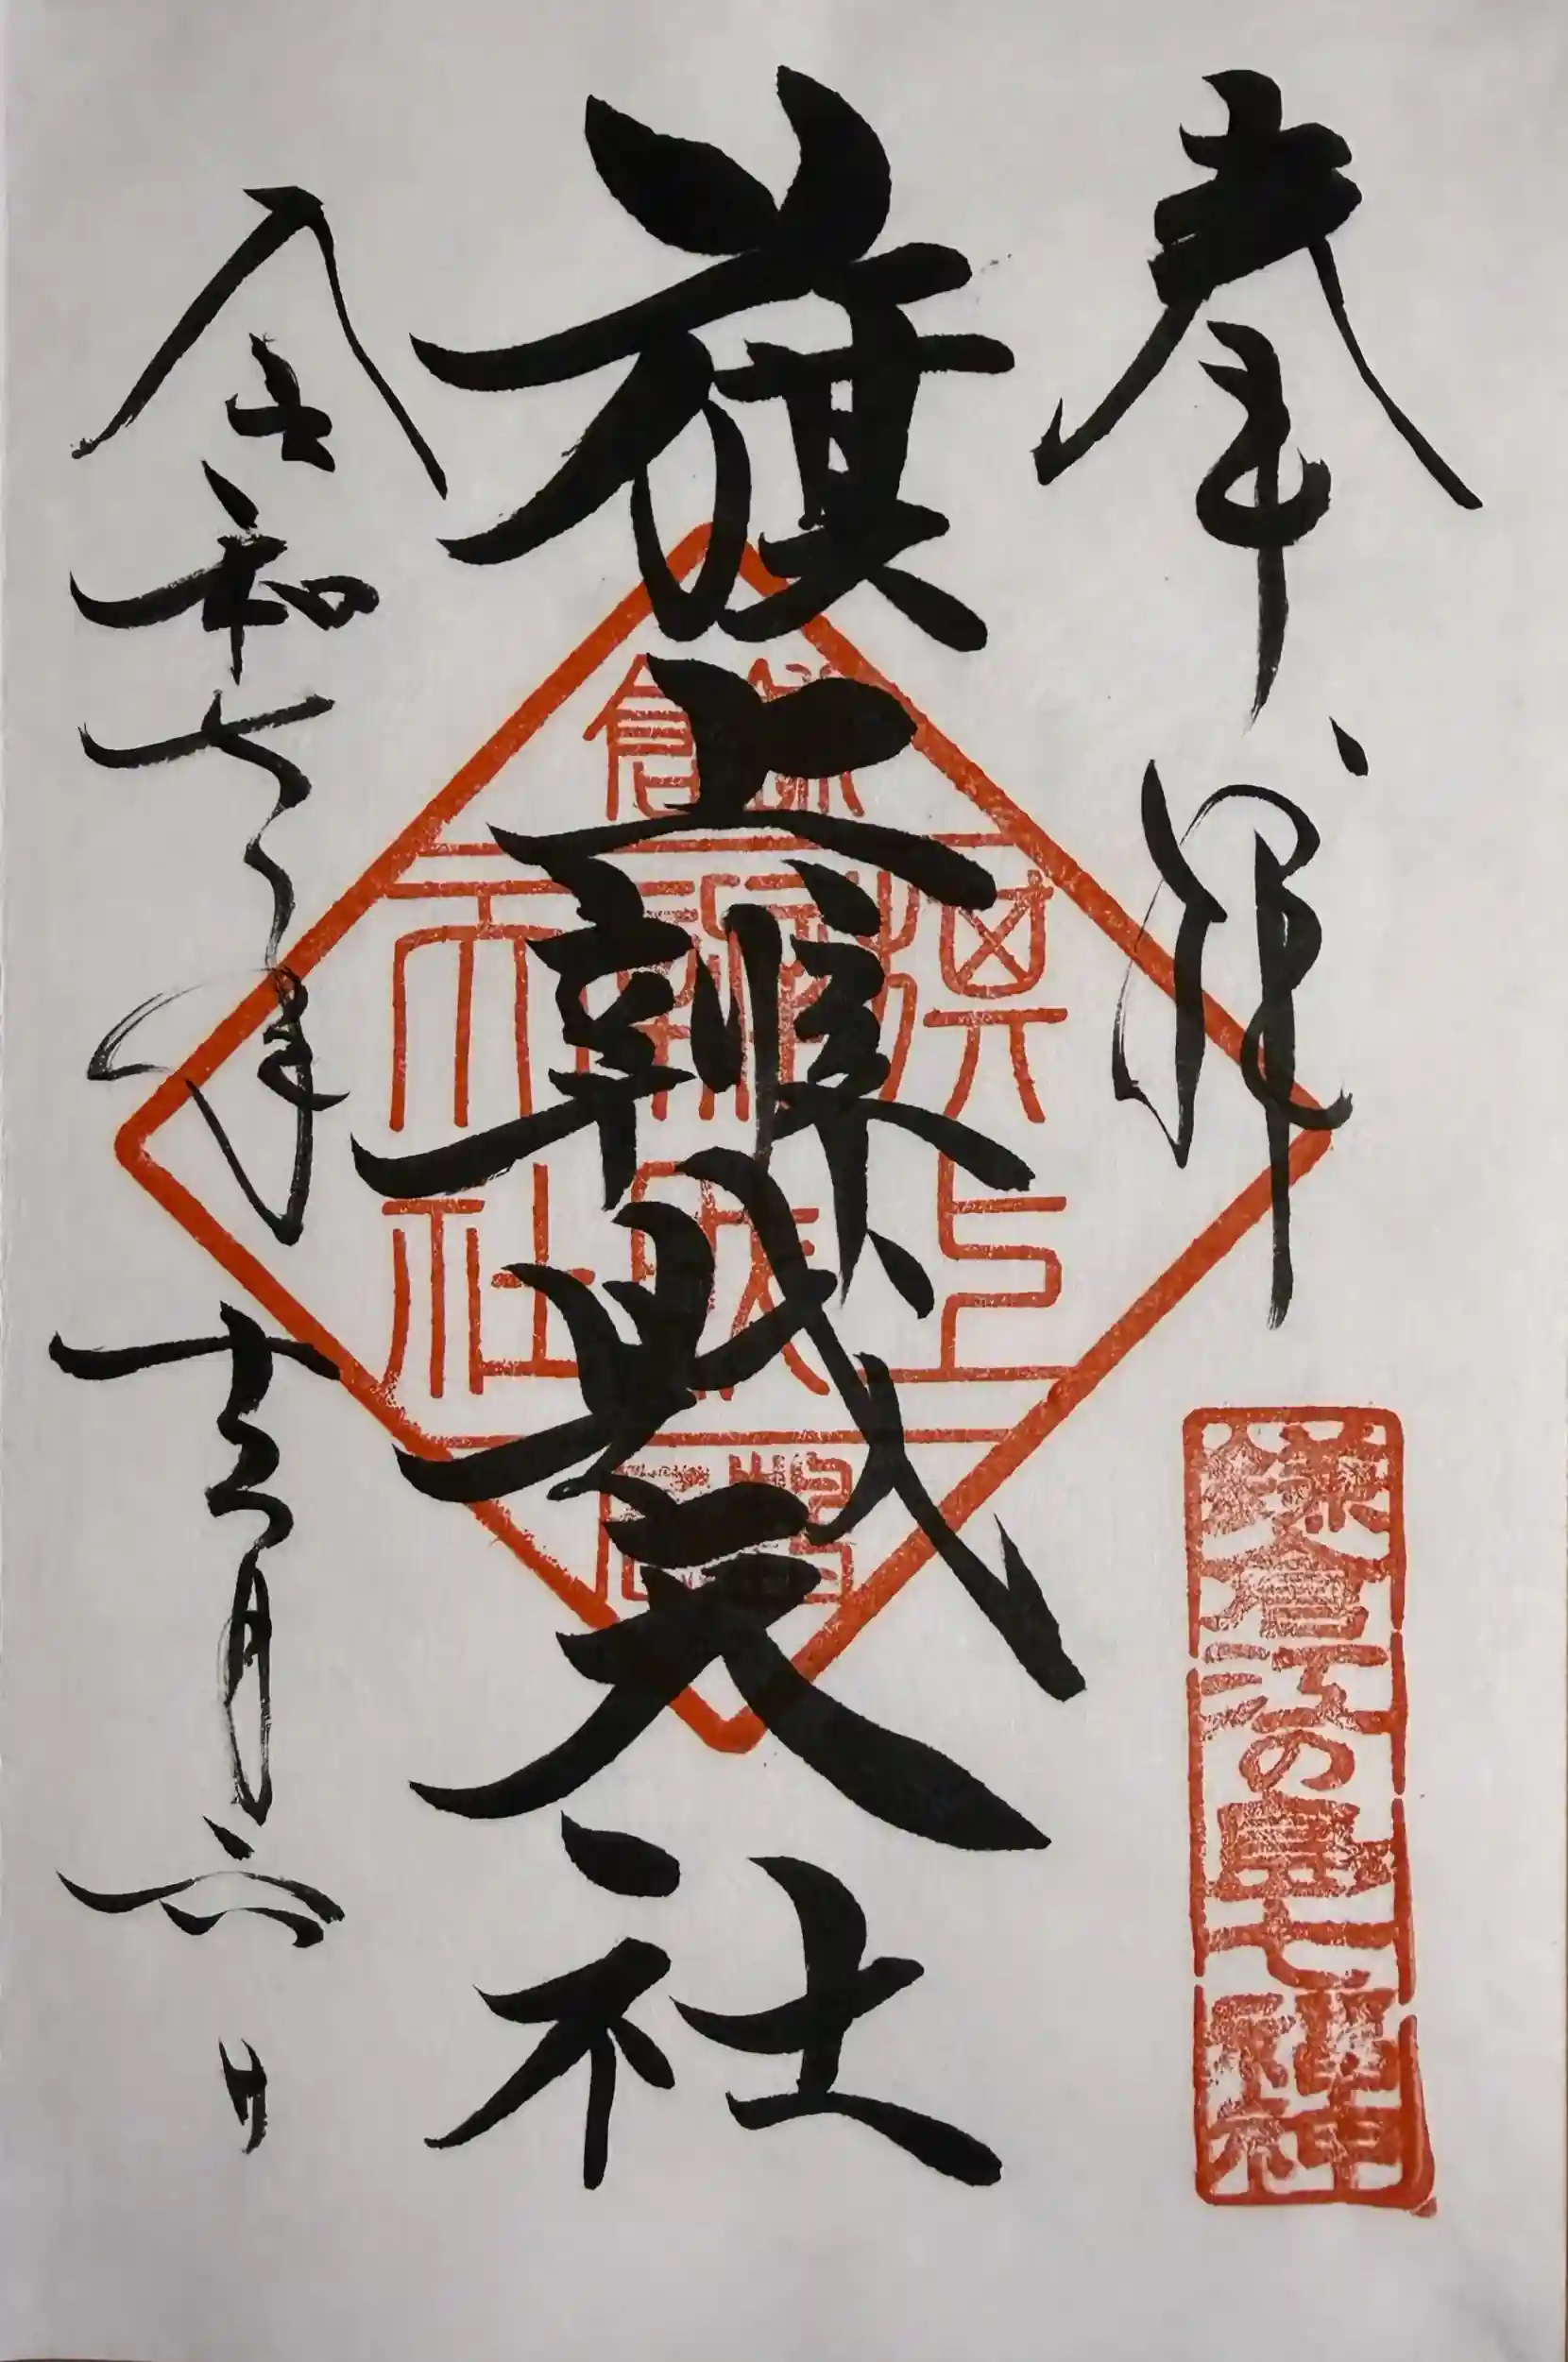 奉拝
鎌倉江の島七福神
旗上辨財天社
鎌倉
令和七年十二月六日